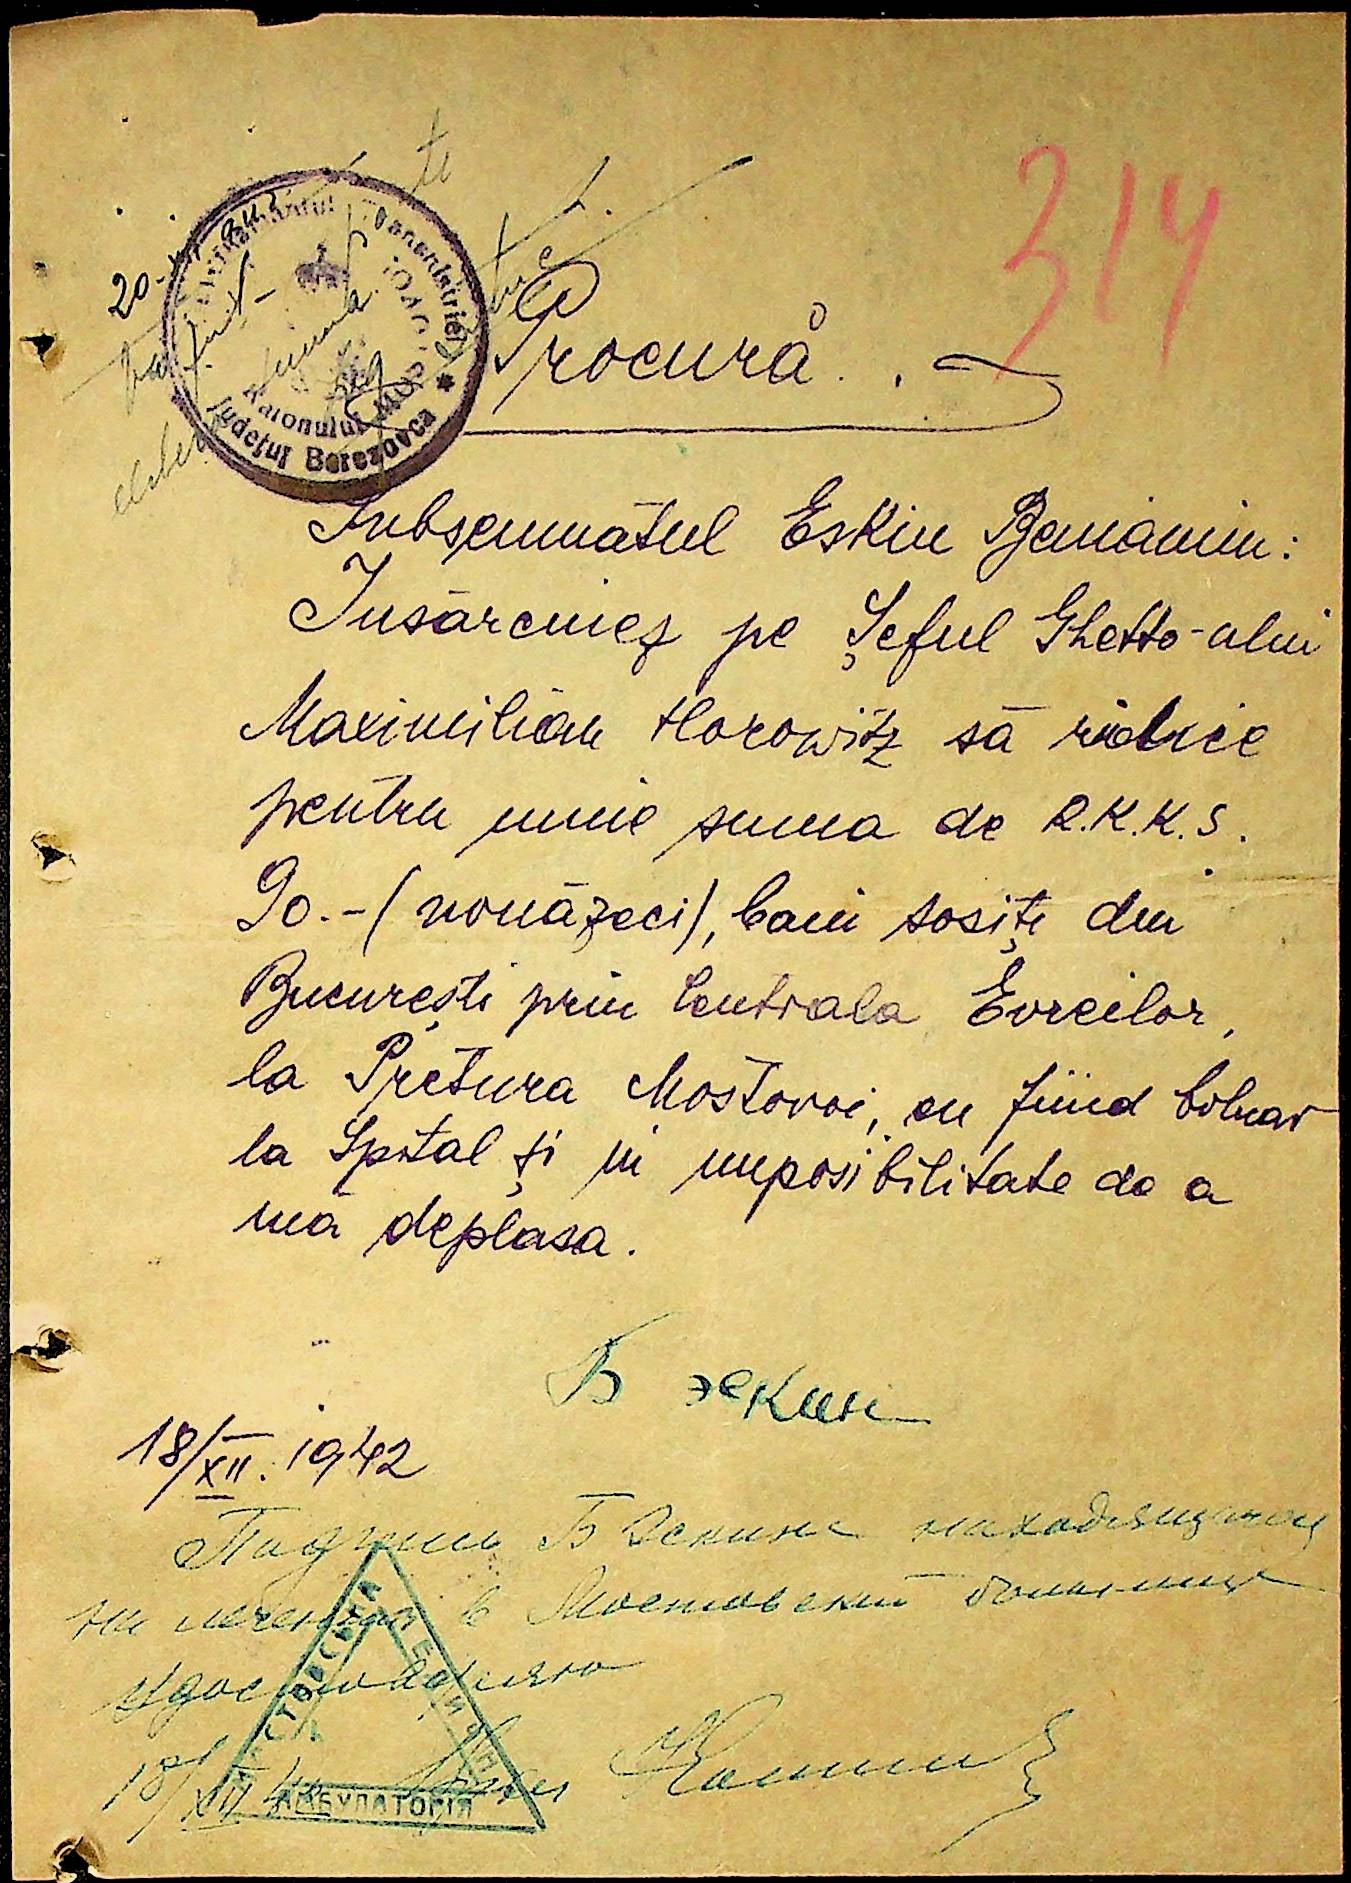 314
20-XII-942
Procură.
Gendarmeriei
Raionului Mostovoi
Județul Berezovca
Subsemnatul Eskin Beniamin:
Însărcinez pe Șeful Ghetto-ului
Maximilian Horowitz să ridice
pentru mine suma de R.K.K.S.
90.-(nouăzeci), bani sosiți din
București prin Centrala Evreilor,
la Pretura Mostovoi, eu fiind bolnav
la Spital și in imposibilitate de a
mă deplasa.
Б Эскин
18/XII. 1942
Подпись Б Эскина находящегося
на лечении в Мостовской больнице
удостоверяю
18/XII 42
АМБУЛАТОРІЯ